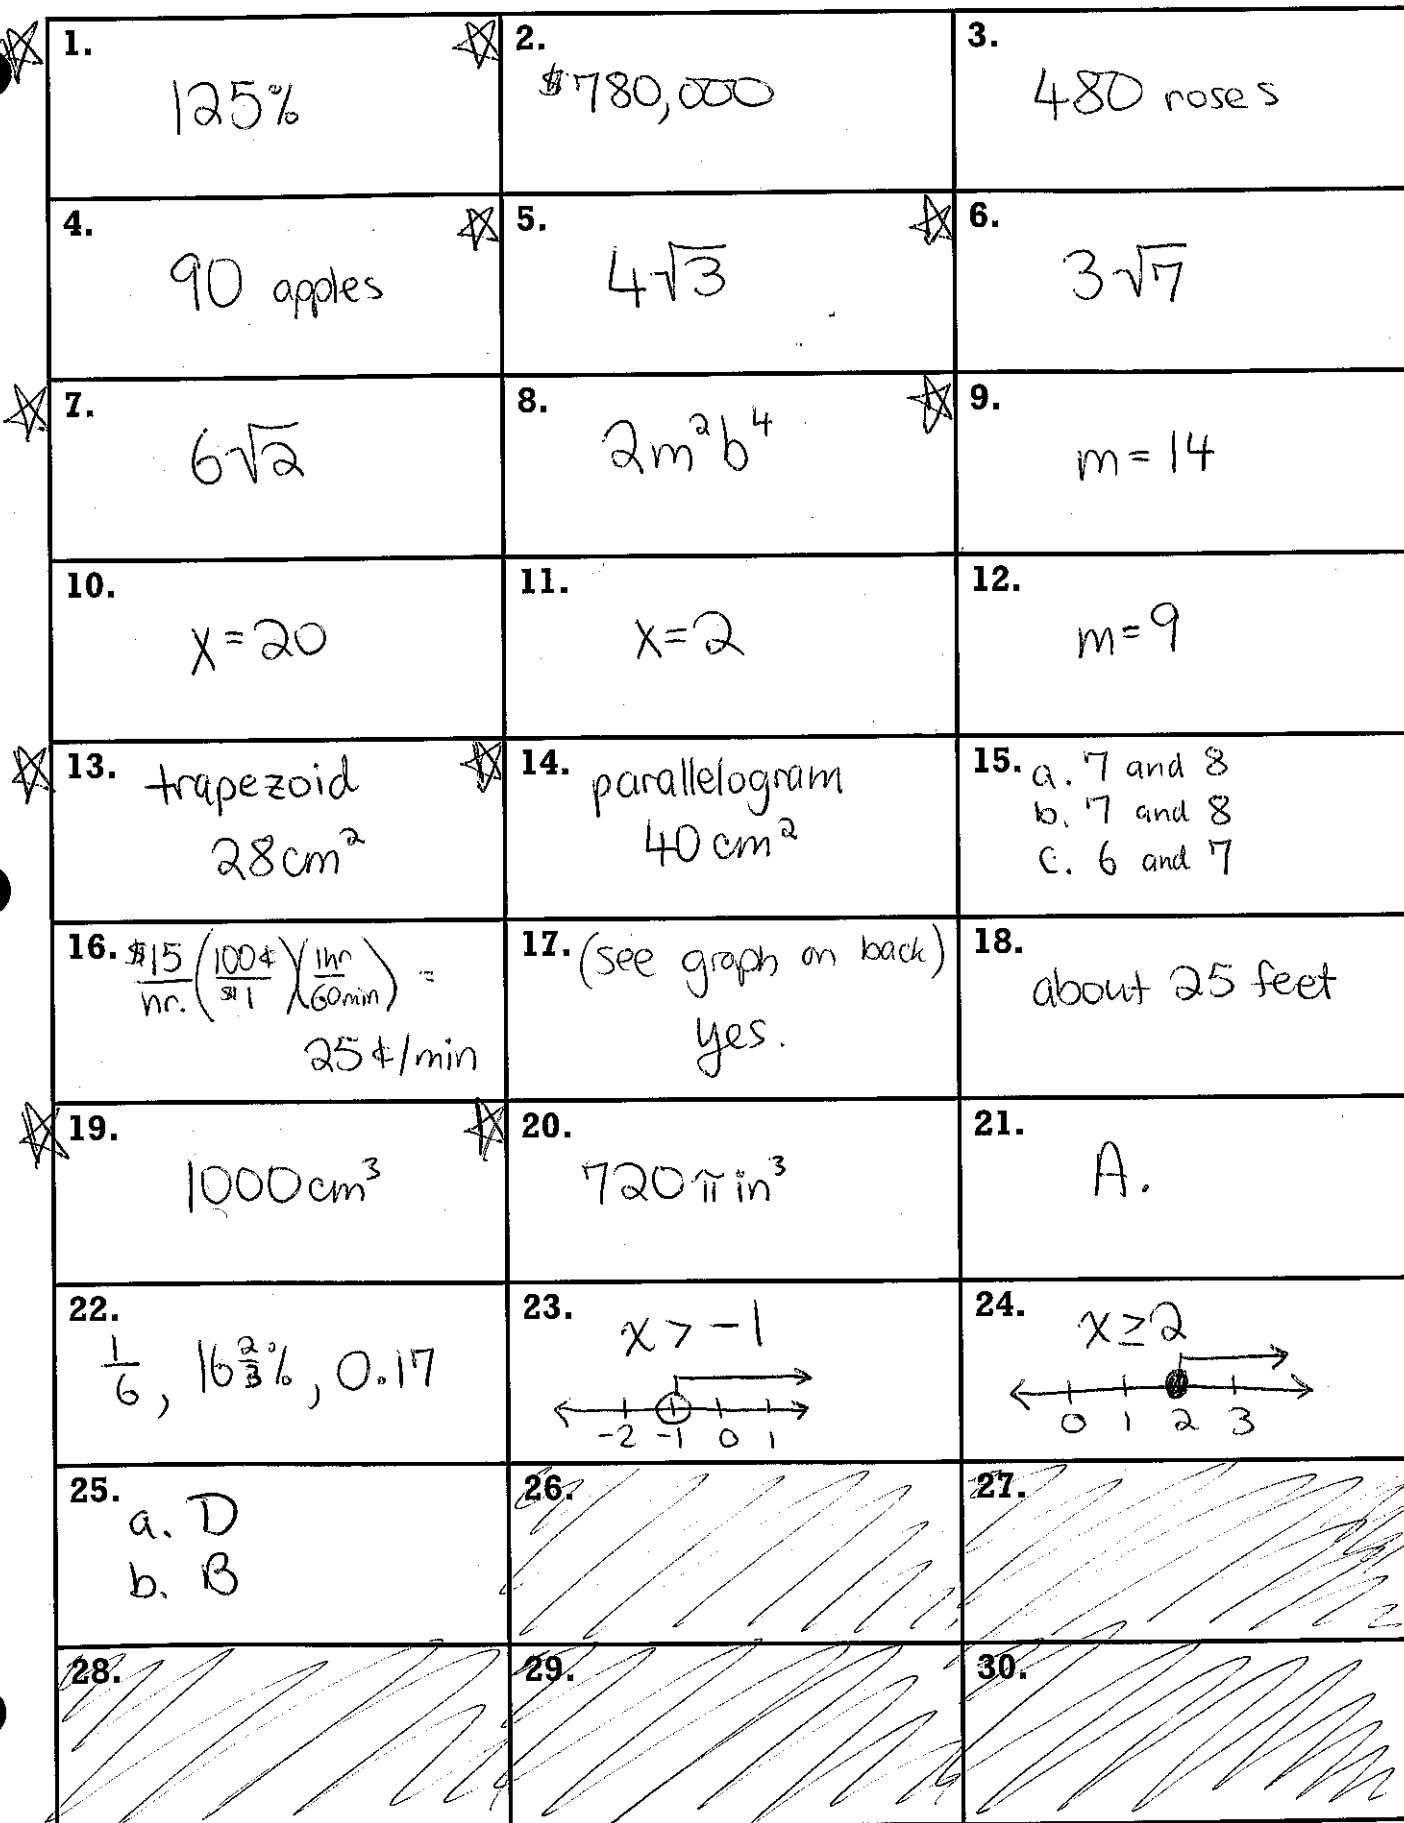 1.
125%
2.
$780,000
3.
480 roses
4.
90 apples
5.
4√3
6.
3√7
7.
6√2
8.
2m²b⁴
9.
m = 14
10.
x = 20
11.
x = 2
12.
m = 9
13. trapezoid
28 cm²
14. parallelogram
40 cm²
15. a. 7 and 8
b. 7 and 8
c. 6 and 7
16. $15/hr. (100¢/$1)(1hr/60min) =
25¢/min
17. (see graph on back)
yes.
18.
about 25 feet
19.
1000 cm³
20.
720π in³
21.
A.
22.
1/6, 16 2/3%, 0.17
23.
x > -1
-2 -1 0 1
24.
x ≥ 2
0 1 2 3
25.
a. D
b. B
26.
27.
28.
29.
30.